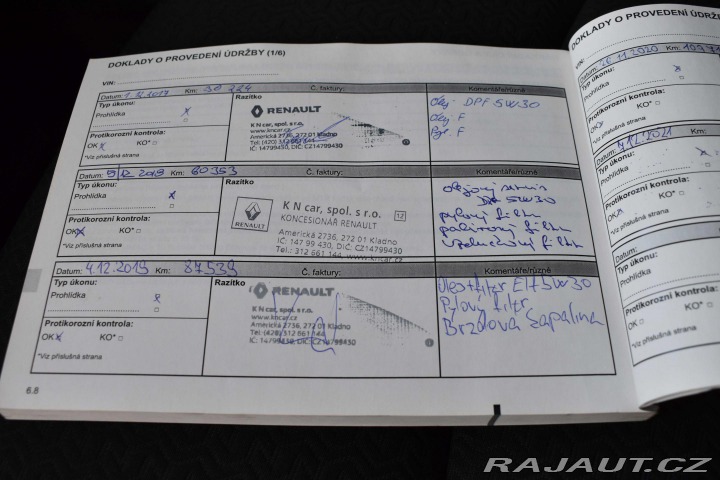 DOKLADY O PROVEDENÍ ÚDRŽBY (1/6)
VIN:
Datum: 1.12.2017 Km: 30 224
Č. faktury:
Komentáře/různé
Typ úkonu:
Prohlídka x
Protikorozní kontrola:
OK KO*
*Viz příslušná strana
Razítko
RENAULT
K N car, spol. s r.o.
www.kncar.cz
Americká 2736, 272 01 Kladno
Tel: (420) 312 661 144
IČ: 14799430, DIČ: CZ14799430
Olej DPF 5W30
Olej. F
Pyl. F
Datum: 5.12 2018 Km: 60353
Č. faktury:
Komentáře/různé
Typ úkonu:
Prohlídka x
Protikorozní kontrola:
OK KO*
*Viz příslušná strana
Razítko
RENAULT
K N car, spol. s r.o. 12
KONCESIONÁŘ RENAULT
Americká 2736, 272 01 Kladno
IČ: 147 99 430, DIČ: CZ14799430
Tel.: 312 661 144, www.kncar.cz
olejový servis
5W30
pylový filtr
palivový filtr
vzduchový filtr
Datum: 4.12.2019 Km: 87539
Č. faktury:
Komentáře/různé
Typ úkonu:
Prohlídka x
Protikorozní kontrola:
OK KO*
*Viz příslušná strana
Razítko
RENAULT
K N car, spol. s r.o.
www.kncar.cz
Americká 2736, 272 01 Kladno
Tel: (420) 312 661 144
IČ: 14799430, DIČ: CZ14799430
Olest filtr Elf 5W30
Pylový filtr
Brzdová kapalina
6.8
DOKLADY O PROVEDENÍ
VIN:
Datum: 26.11.2020 Km:
Typ úkonu:
Prohlídka
Protikorozní kontrola:
OK KO*
*Viz příslušná strana
Datum: 7.12.2021 Km:
Typ úkonu:
Prohlídka
Protikorozní kontrola:
OK KO*
*Viz příslušná strana
Datum:
Typ úkonu:
Prohlídka
Protikorozní kontrola:
OK KO*
*Viz příslušná strana
RAJAUT.CZ